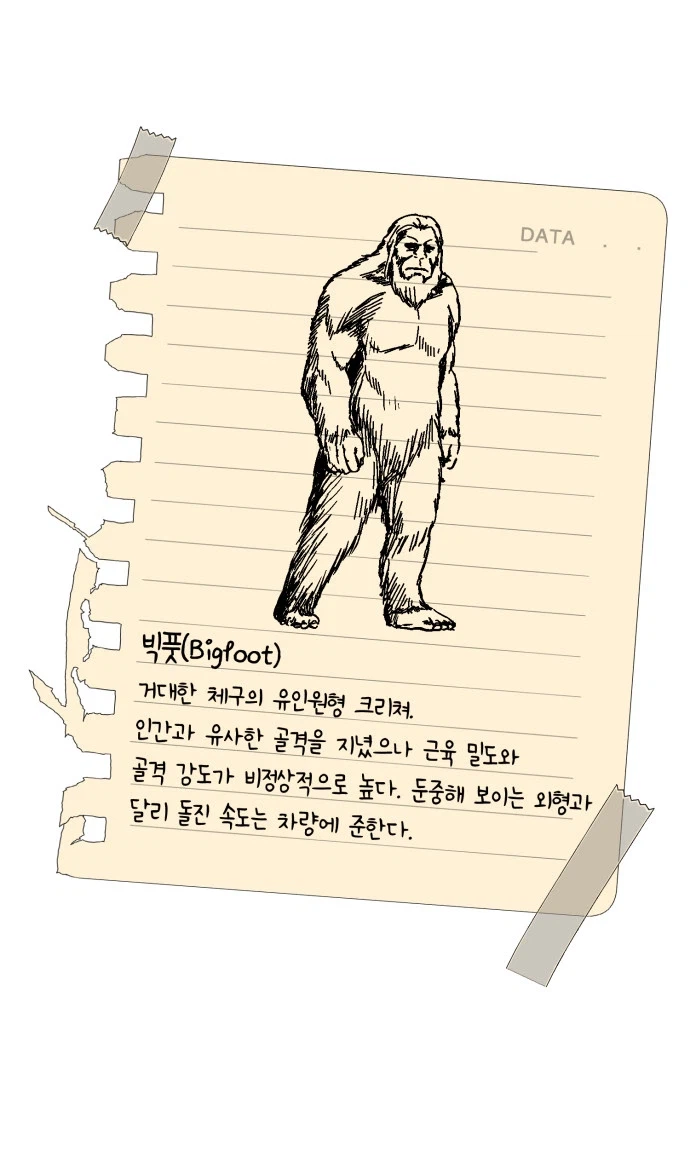 DATA . .
빅풋(Bigfoot)
거대한 체구의 유인원형 크리쳐.
인간과 유사한 골격을 지녔으나 근육 밀도와
골격 강도가 비정상적으로 높다. 둔중해 보이는 외형과
달리 돌진 속도는 차량에 준한다.